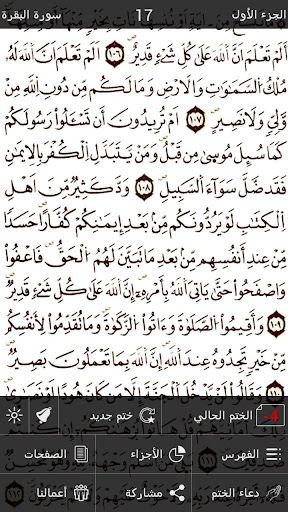 الجزء الأول 17 سورة البقرة
أَلَمْ تَعْلَمْ أَنَّ اللَّهَ عَلَىٰ كُلِّ شَيْءٍ قَدِيرٌ ١٠٦ أَلَمْ تَعْلَمْ أَنَّ اللَّهَ لَهُ
مُلْكُ السَّمَٰوَاتِ وَالْأَرْضِ وَمَا لَكُمْ مِنْ دُونِ اللَّهِ مِنْ
وَلِيٍّ وَلَا نَصِيرٍ ١٠٧ أَمْ تُرِيدُونَ أَنْ تَسْـَٔلُوا رَسُولَكُمْ
كَمَا سُئِلَ مُوسَىٰ مِنْ قَبْلُ وَمَنْ يَتَبَدَّلِ الْكُفْرَ بِالْإِيمَانِ
فَقَدْ ضَلَّ سَوَاءَ السَّبِيلِ ١٠٨ وَدَّ كَثِيرٌ مِنْ أَهْلِ
الْكِتَابِ لَوْ يَرُدُّونَكُمْ مِنْ بَعْدِ إِيمَانِكُمْ كُفَّارًا حَسَدًا
مِنْ عِنْدِ أَنْفُسِهِمْ مِنْ بَعْدِ مَا تَبَيَّنَ لَهُمُ الْحَقُّ فَاعْفُوا
وَاصْفَحُوا حَتَّىٰ يَأْتِيَ اللَّهُ بِأَمْرِهِ إِنَّ اللَّهَ عَلَىٰ كُلِّ شَيْءٍ قَدِيرٌ
١٠٩ وَأَقِيمُوا الصَّلَوٰةَ وَآتُوا الزَّكَوٰةَ وَمَا تُقَدِّمُوا لِأَنْفُسِكُمْ
مِنْ خَيْرٍ تَجِدُوهُ عِنْدَ اللَّهِ إِنَّ اللَّهَ بِمَا تَعْمَلُونَ بَصِيرٌ
١١٠ وَقَالُوا لَنْ يَدْخُلَ الْجَنَّةَ إِلَّا مَنْ كَانَ هُودًا أَوْ نَصَارَىٰ
-4 الختم الحالي ختم جديد
الفهرس الأجزاء الصفحات
دعاء الختم مشاركة أعمالنا